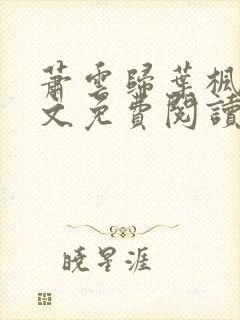 蕭雲歸葉楓
文免費閱讀
曉星涯